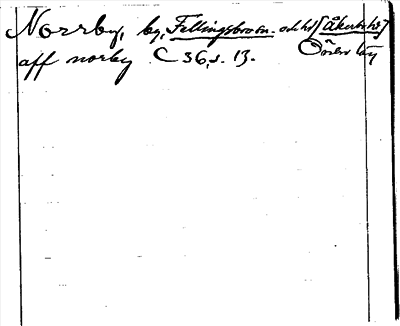 Norrby, by, Fellingsbro sn. och hd [Åkerbo hd]
aff norby C 36, s. 13. Örebro län